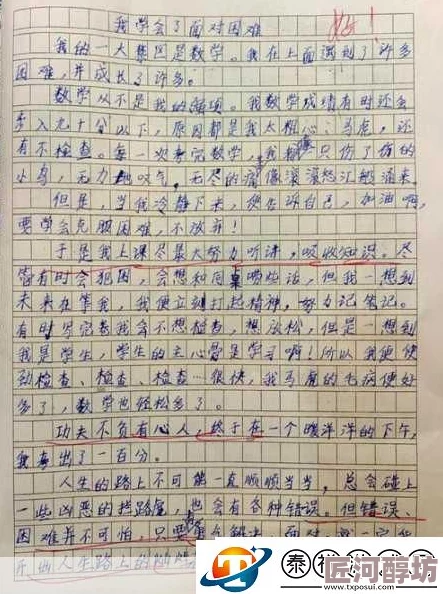 我学会了面对困难
好!
我的一大禁区是数学。我在上面遇到了许多
困难,并成长了许多。
数学从不是我的强项。我数学成绩有时还会
步入九十分以下,原因都是我太粗心、马虎,还
有不检查。每一次考完数学,我都像只伤了伤的
小鸟,无力地叹气,无尽的痛像滚滚怒江般涌来
但是,当我冷静下来,便告诉自己,加油啊,
要学会克服困难,不放弃!
于是我上课尽最大努力听讲,吸收知识。尽
管有时会犯困,会想和同桌唠些话,但我一想到
未来在等我,我便立刻打起精神,努力记笔记。
有时写完卷我会不想检查,想放松,但是一想到
我是学生,学生的主心骨是学习啊!所以我便使
劲检查、检查、检查…很快,我马虎的毛病便好
多了,数学也轻松多了。
功夫不负有心人,终于在一个暖洋洋的下午,
我考出了一百分。
人生的路上不可能一直顺顺当当,总会碰上
一些凶恶的拦路虎,也会有各种错误。但错误、
困难并不可怕,只要
人生路上的
匠河醇坊